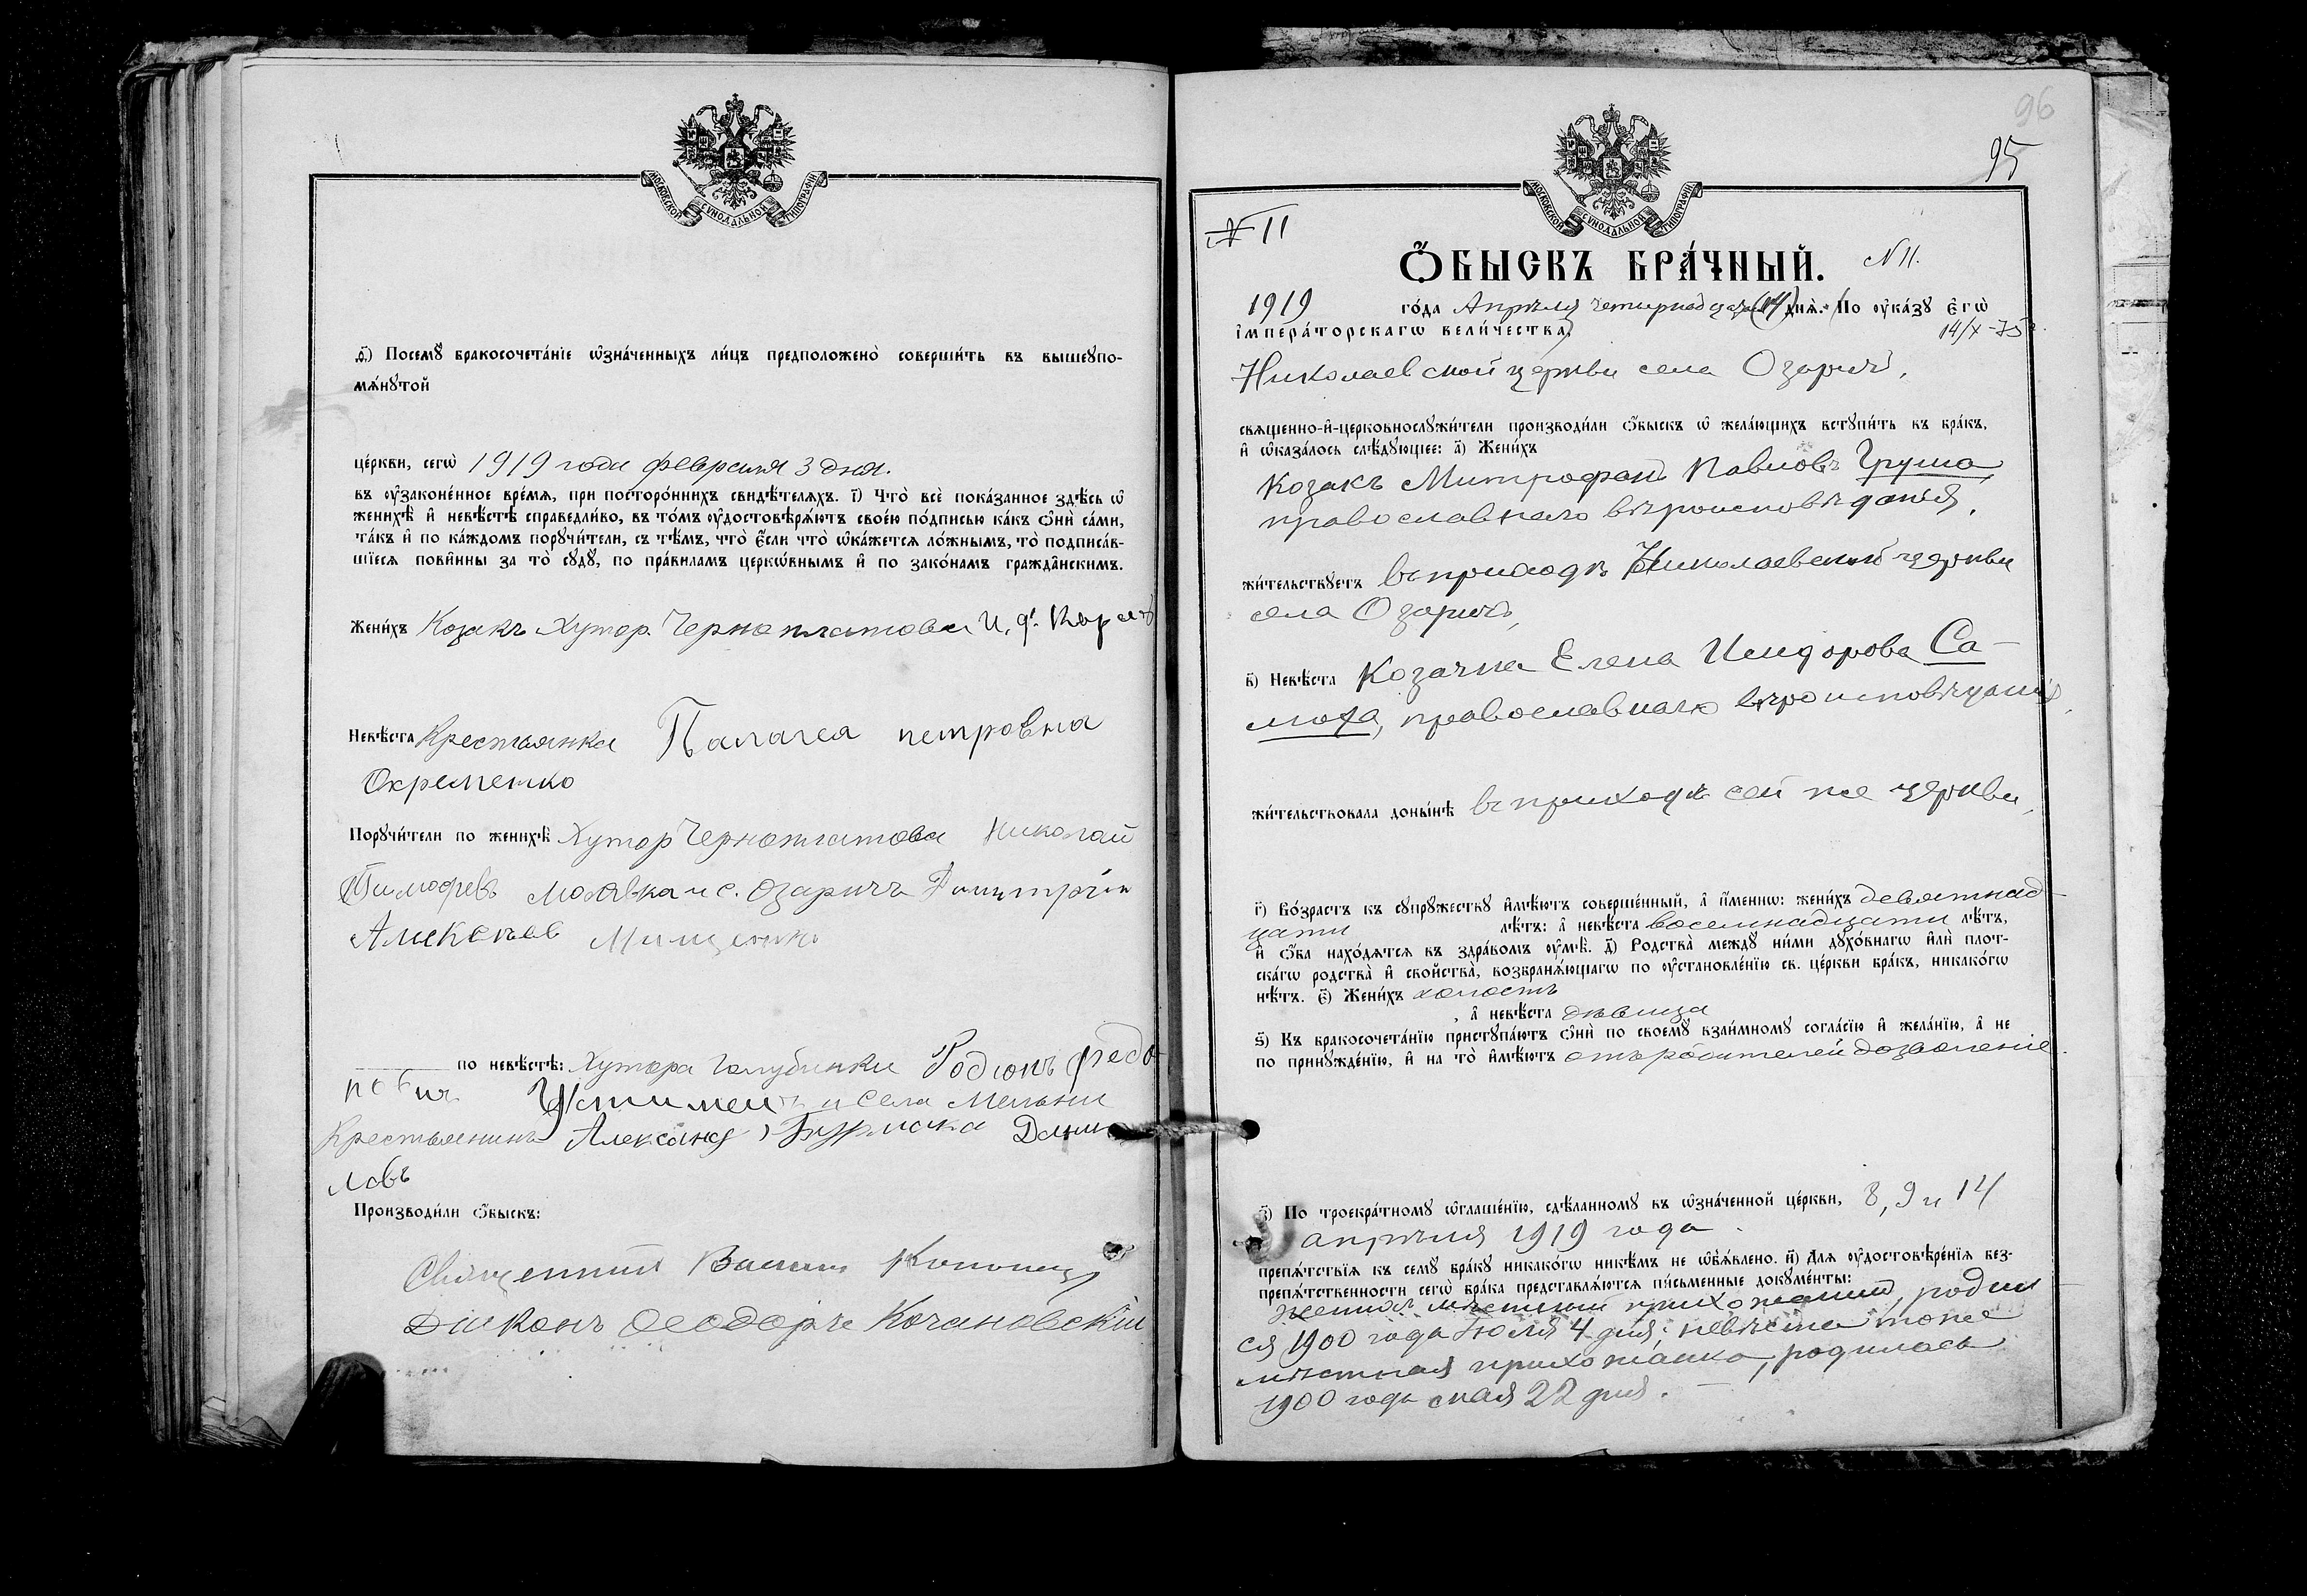 МОСКОВСКОЙ СѴНОДАЛЬНОЙ ТИПОГРАФІИ
ѳ҃) Посемꙋ̀ бракосочета́нїе ѡ҆зна́ченныхъ ли́цъ предположено̀ соверши́ть въ вышеꙋпо-
мѧ́нꙋтой
це́ркви, сегѡ̀ 1919 года февраля 3 дня.
въ ᲂу҆законе́нное вре́мѧ, при посторо́ннихъ свидѣ́телѧхъ. і҃) Что̀ всѐ пока́занное здѣ́сь ѡ҆
женихѣ̀ и҆ невѣ́стѣ справедли́во, въ то́мъ ᲂу҆достовѣрѧ́ютъ свое́ю по́дписью ка́къ ѻ҆нѝ са́ми,
та́къ и҆ по ка́ждомъ порꙋчи́тели, съ тѣ́мъ, что̀ є҆́сли что̀ ѡ҆ка́жетсѧ ло́жнымъ, то̀ подписа́в-
шїесѧ пови́нны за то̀ сꙋдꙋ̀, по пра́виламъ церкѡ́внымъ и҆ по зако́намъ гражда̑нскимъ.
Жени́хъ Козакъ Хутор. Черноплатова И. ф.
Невѣ́ста Крестьянка Палагея петровна
Охременко
Порꙋчи́тели по женихѣ̀ Хутор Черноплатова Николай
Тимофеевъ и с. Озаричъ Димитрій
Алексеев Мищенко
по невѣ́стѣ: Хутора Голубинки Родіонъ федо
Устимен и села Мельни
Крестьянинъ Александ Бурмака Дани
ловъ
Производи́ли ѻ҆́быскъ:
Священник Василій
Діаконъ Ѳеодоръ Кочановскій
96
95
МОСКОВСКОЙ СѴНОДАЛЬНОЙ ТИПОГРАФІИ
№ 11
Ѻ҆БЫСКЪ БРА́ЧНЫЙ. N 11.
1919 го́да Апрѣля четырнадцат (14) днѧ̀. По ᲂу҆ка́зꙋ є҆гѡ̀
і҆мпера́торскагѡ вели́чества,
14/X-75г.
Николаевской церкви села Озаричъ,
свѧще́нно-и҆-церковнослꙋжи́тели производи́ли ѻ҆́быскъ ѡ҆ жела́ющихъ встꙋпи́ть въ бра́къ,
и҆ ѡ҆каза́лось слѣ́дꙋющее: а҃) Жени́хъ
Козакъ Митрофанъ Павловъ Груша,
православнаго вѣроисповѣданія,
жи́тельствꙋетъ въ приходѣ Николаевской церкви
села Озаричъ,
в҃) Невѣ́ста Козачка Елена Исидорова Са-
моха, православнаго вѣроисповѣданія,
жи́тельствовала доны́нѣ въ приходѣ сей же церкви,
г҃) Во́зрастъ къ сꙋпрꙋ́жествꙋ и҆мѣ́ютъ соверше́нный, а҆ и҆́меннѡ: жени́хъ девятнад-
цати лѣ́тъ: а҆ невѣ́ста восемнадцати лѣ́тъ,
и҆ ѻ҆́ба нахо́дѧтсѧ въ здра́вомъ ᲂу҆мѣ̀. д҃) Родства̀ междꙋ ни́ми дꙋхо́внагѡ и҆лѝ плот-
ска́гѡ родства̀ и҆ сво́йства, возбранѧ́ющагѡ по ᲂу҆становле́нїю св. це́ркви бра́къ, никако́гѡ
нѣ́тъ. є҃) Жени́хъ холостъ
, а҆ невѣ́ста дѣвица
ѕ҃) Къ бракосочета́нїю пристꙋпа́ютъ ѻ҆нѝ по своемꙋ̀ взаи́мномꙋ согла́сїю и҆ жела́нїю, а҆ не
по принꙋжде́нїю, и҆ на то̀ и҆мѣ́ютъ отъ родителей дозволеніе.
з҃) По троекра́тномꙋ ѡ҆глаше́нїю, сдѣ́ланномꙋ въ ѡ҆зна́ченной це́ркви, 8, 9 и 14
апрѣля 1919 года.
препѧ́тствїѧ къ семꙋ̀ бра́кꙋ никако́гѡ никѣ́мъ не ѡ҆б̾ѧ́влено. и҃) Длѧ ᲂу҆достовѣре́нїѧ без-
препѧ́тственности сегѡ̀ бра́ка представлѧ́ютсѧ пи́сьменные докꙋме́нты:
Жених мѣстный прихожанин, родил
ся 1900 года Іюля 4 дня; невѣста тоже
мѣстная прихожанка, родилась
1900 года мая 22 дня.